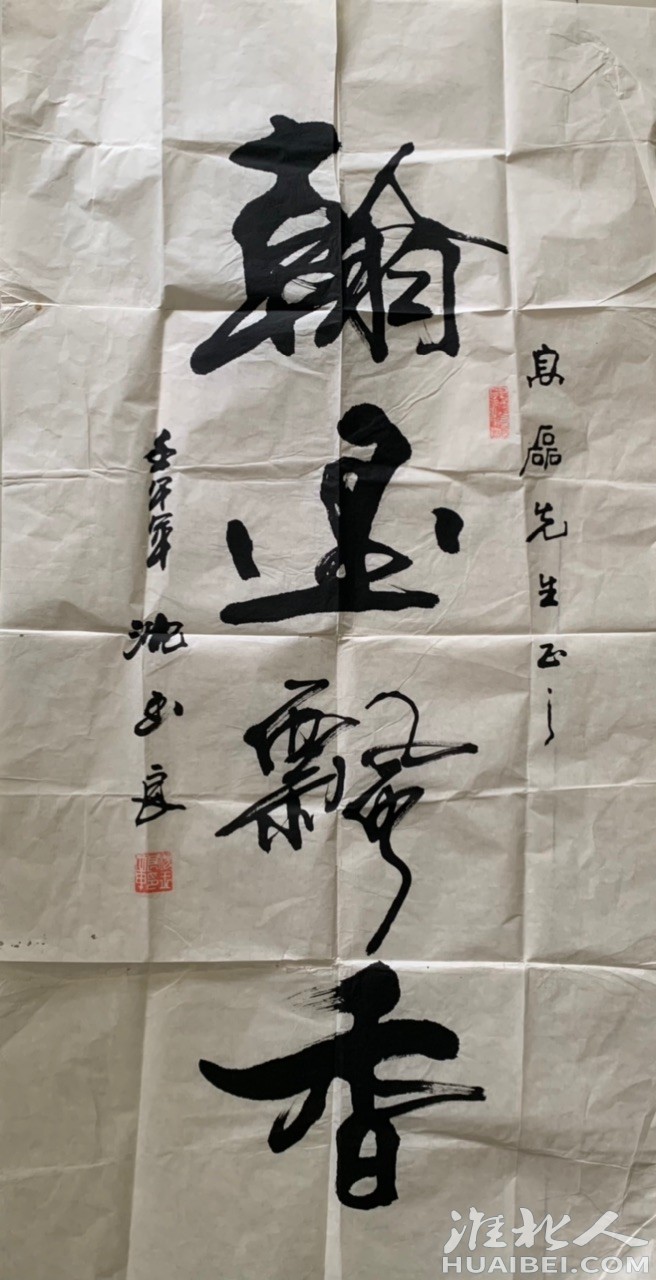 高磊先生正之
翰墨飄香
壬午年
沈 良
淮北人
HUAIBEI.COM